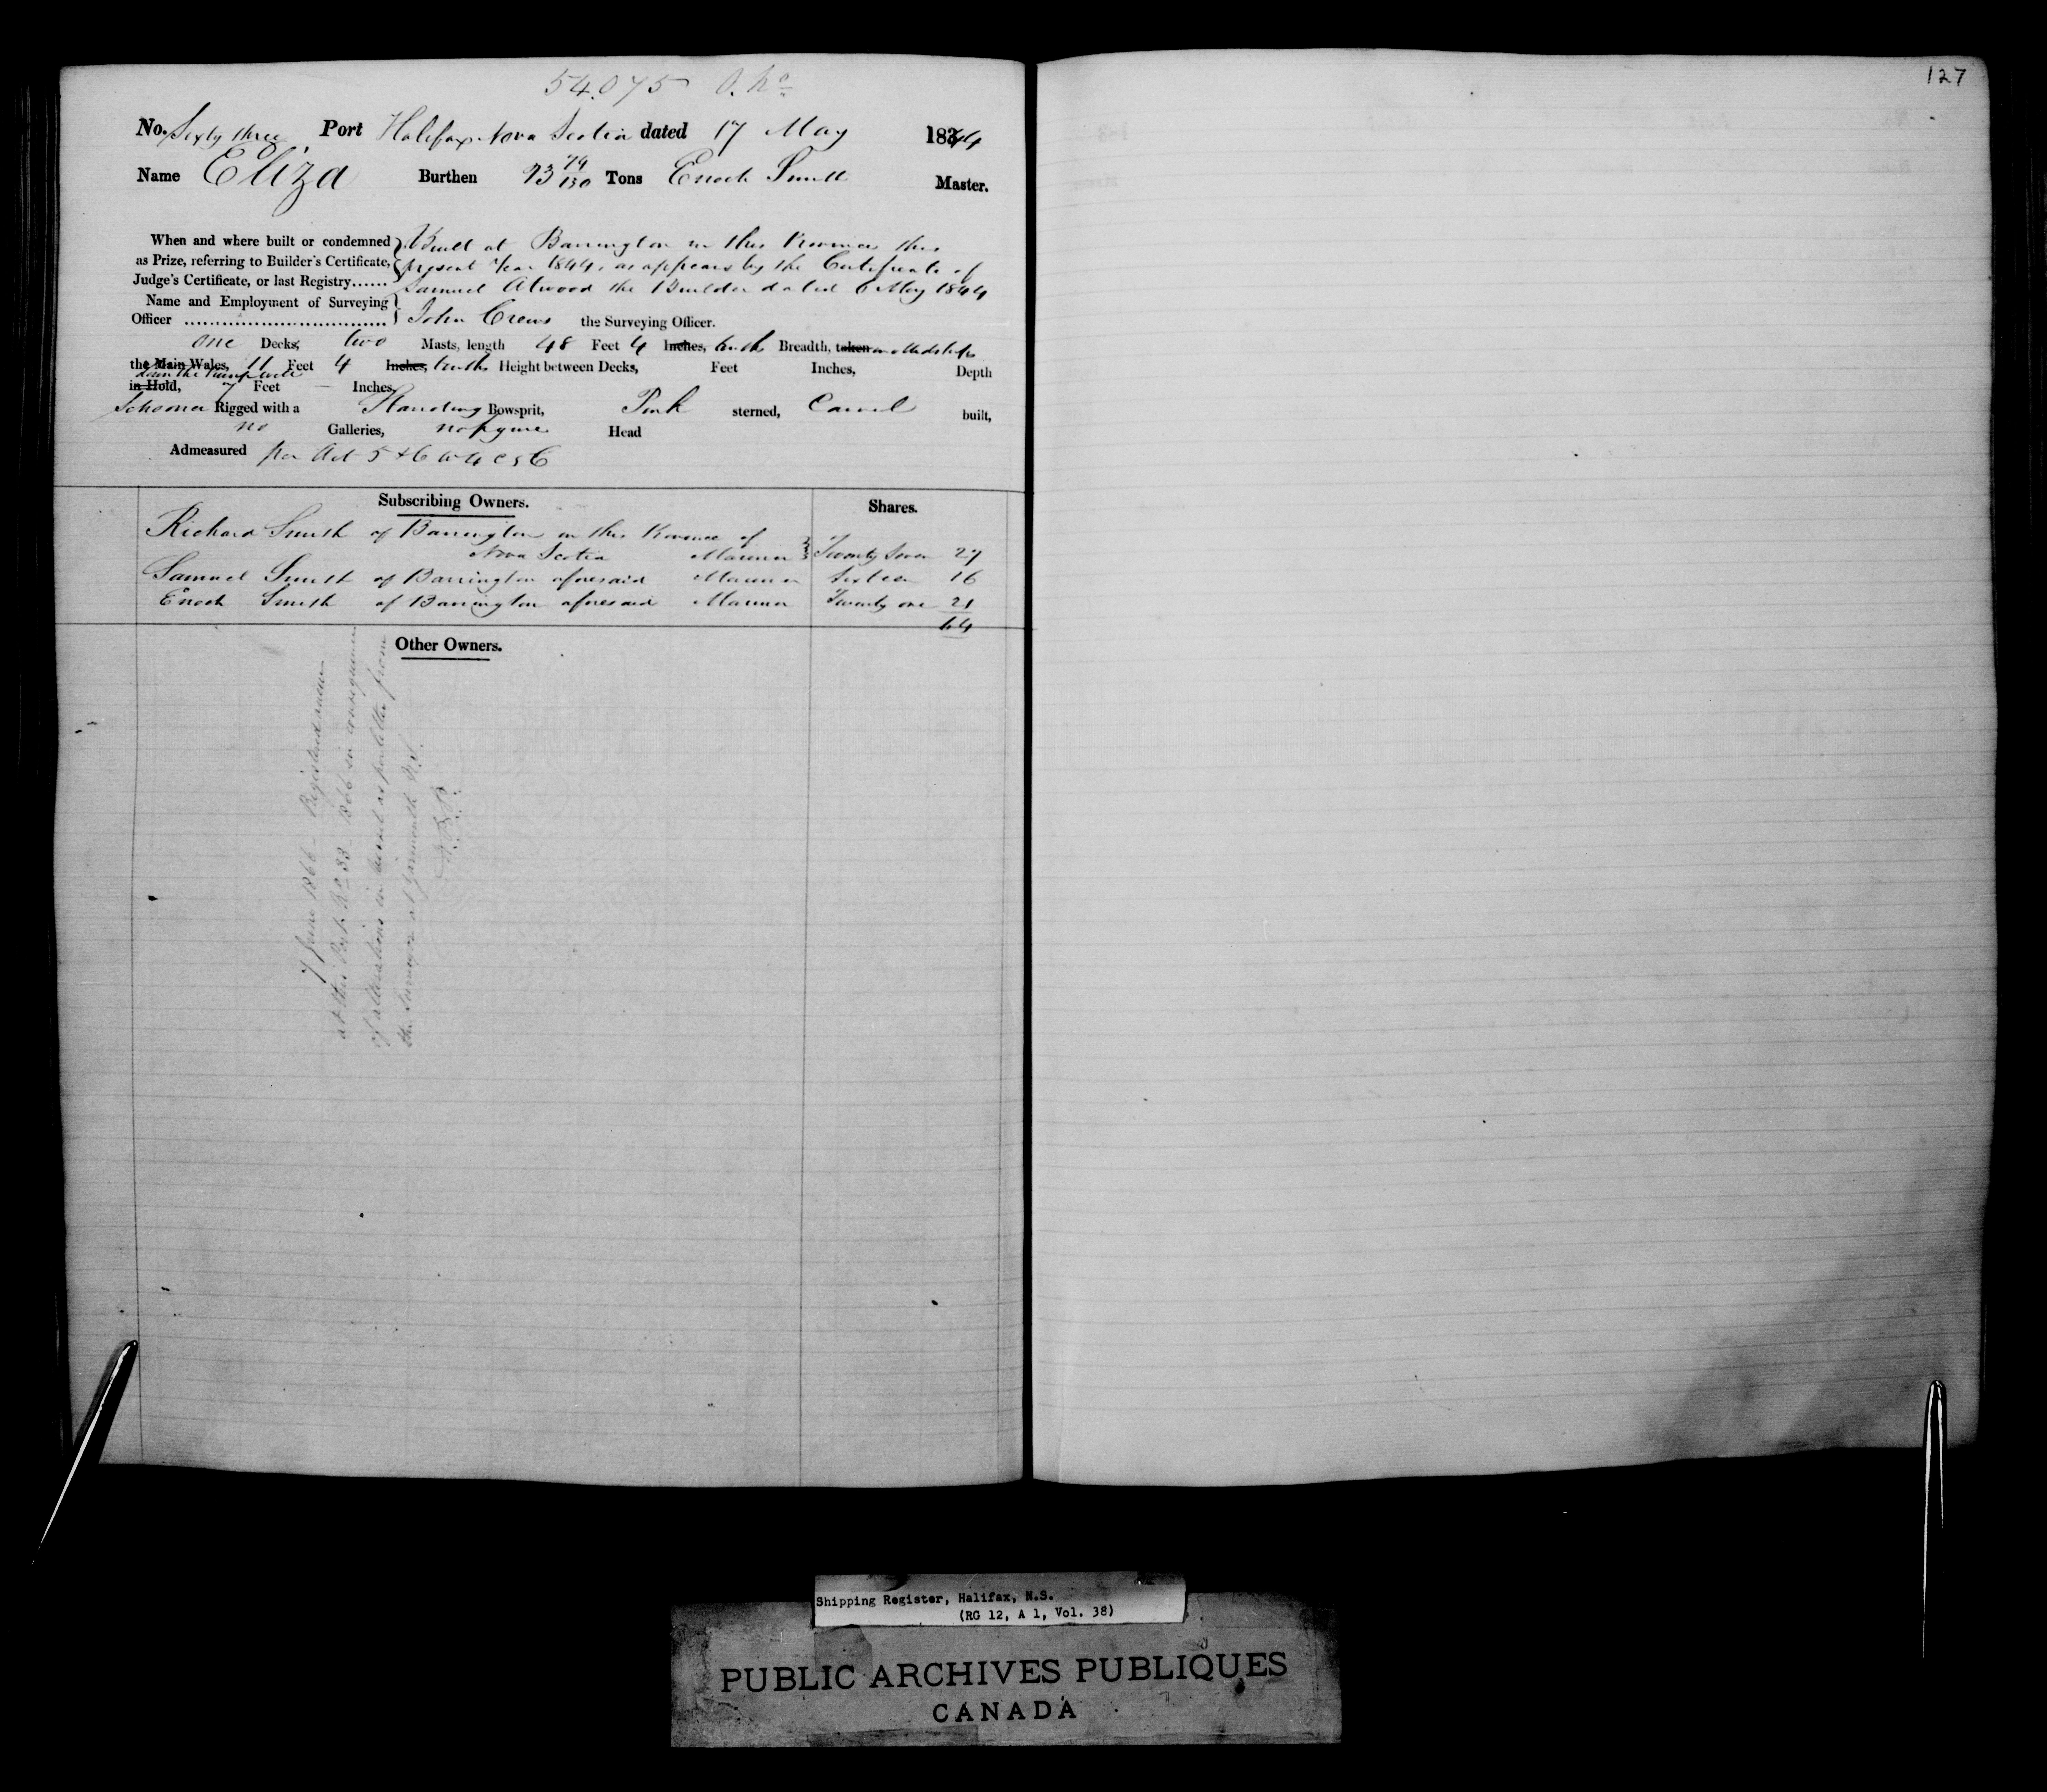 54.075 O. No
127
No. Sixty three Port Halifax Nova Scotia dated 17 May 1844
Name Eliza Burthen 23 79/130 Tons Enoch Smith Master.
When and where built or condemned as Prize, referring to Builder's Certificate, Judge's Certificate, or last Registry......
Built at Barrington in this Province this
present Year 1844, as appears by the Certificate of
Samuel Atwood the Builder dated 6 May 1844
Name and Employment of Surveying Officer ................................
John Crews the Surveying Officer.
One Decks, two Masts, length 48 Feet 4 Inches, tenths Breadth, taken in midships
the Main Wales, 11 Feet 4 Inches, tenths Height between Decks, Feet Inches, Depth
in Hold, 7 Feet — Inches
Schooner Rigged with a Standing Bowsprit, Pink sterned, Carvel built,
no Galleries, no figure Head
Admeasured per Act 5 & 6 W 4 C 56
Subscribing Owners. Shares.
Richard Smith of Barrington in this Province of
Nova Scotia Mariner Twenty Seven 27
Samuel Smith of Barrington aforesaid Mariner Sixteen 16
Enoch Smith of Barrington aforesaid Mariner Twenty one 21
64
Other Owners.
7 June 1866 - Registered anew
at this Port No 33 - 1866 in consequence
of alterations in vessel as per letter from
the Surveyor at Yarmouth N.S.
Shipping Register, Halifax, N.S.
(RG 12, A 1, Vol. 38)
PUBLIC ARCHIVES PUBLIQUES
CANADA